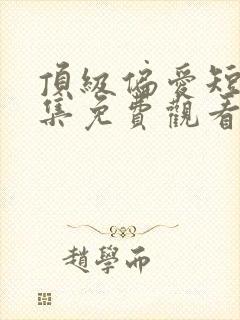 頂級偏愛短
集免費觀看
趙學而